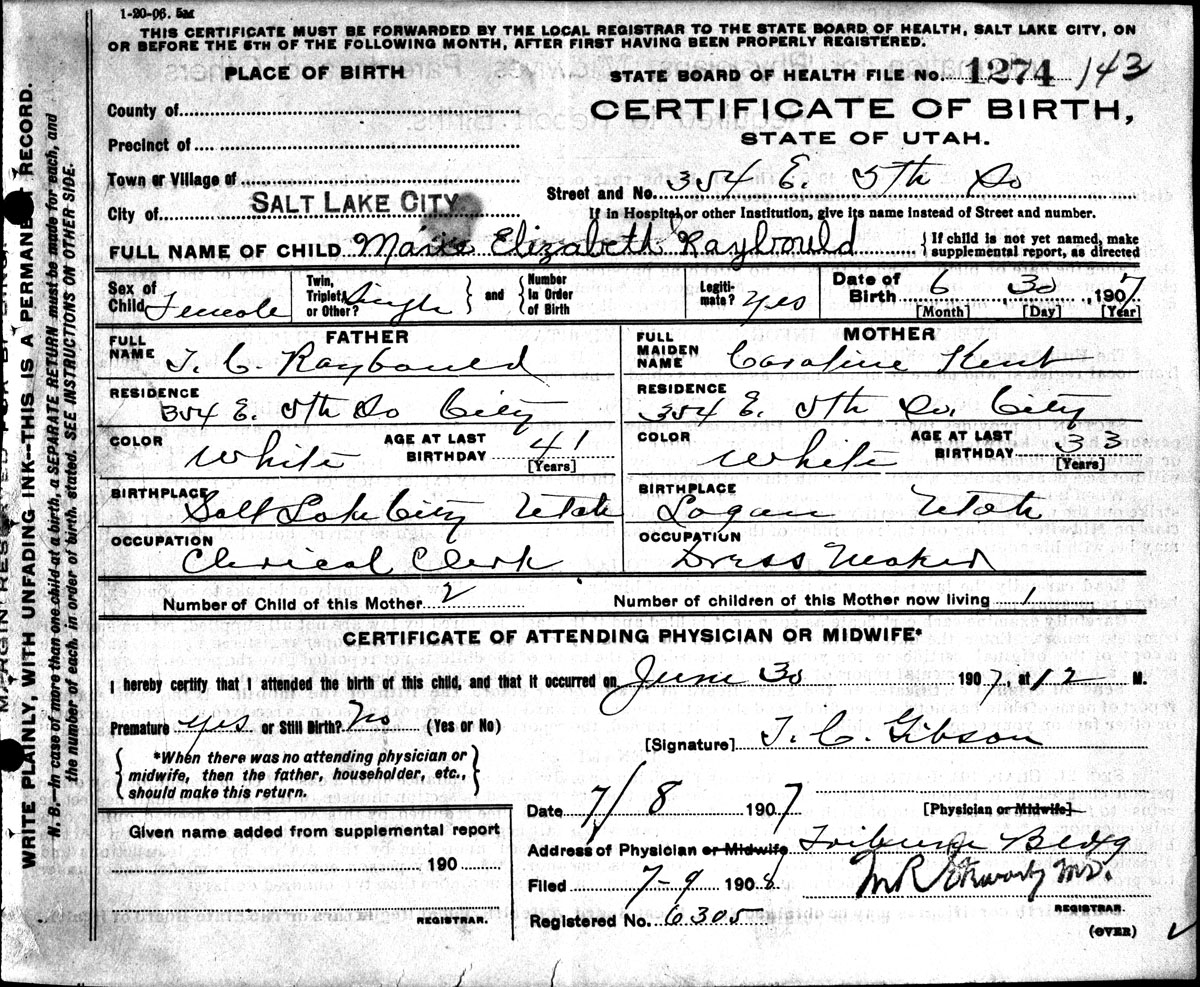 1-20-06. 5M
THIS CERTIFICATE MUST BE FORWARDED BY THE LOCAL REGISTRAR TO THE STATE BOARD OF HEALTH, SALT LAKE CITY, ON
OR BEFORE THE 5TH OF THE FOLLOWING MONTH, AFTER FIRST HAVING BEEN PROPERLY REGISTERED.
PLACE OF BIRTH
STATE BOARD OF HEALTH FILE No. 1274 143
CERTIFICATE OF BIRTH,
STATE OF UTAH.
County of
Precinct of
Town or Village of
Street and No. 354 E. 5th So
City of SALT LAKE CITY
If in Hospital, or other Institution, give its name instead of Street and number.
FULL NAME OF CHILD Elizabeth Raybould { If child is not yet named, make supplemental report, as directed
Sex of Child Female
Twin, Triplet, or Other? Single } and { Number in Order of Birth
Legitimate? Yes
Date of Birth 6 30, 1907
[Month] [Day] [Year]
FATHER
FULL NAME T. C. Raybould
RESIDENCE 354 E. 5th So City
COLOR White AGE AT LAST BIRTHDAY 41 [Years]
BIRTHPLACE Salt Lake City Utah
OCCUPATION Clerical Clerk
MOTHER
FULL MAIDEN NAME Caroline Kent
RESIDENCE 354 E. 5th So. City
COLOR White AGE AT LAST BIRTHDAY 33 [Years]
BIRTHPLACE Logan Utah
OCCUPATION Dress Maker
Number of Child of this Mother 2 Number of children of this Mother now living 1
CERTIFICATE OF ATTENDING PHYSICIAN OR MIDWIFE*
I hereby certify that I attended the birth of this child, and that it occurred on June 30 1907, at 12 M.
Premature yes or Still Birth? No (Yes or No)
[Signature] T. C. Gibson
{ *When there was no attending physician or midwife, then the father, householder, etc., should make this return. }
Date 7/8 1907 [Physician or Midwife]
Given name added from supplemental report
190
REGISTRAR.
Address of Physician or Midwife Tribune Bldg
Filed 7-9 1908 M.D.
REGISTRAR.
Registered No. 6305
(OVER)
WRITE PLAINLY, WITH UNFADING INK—THIS IS A PERMANENT RECORD.
N. B.—In case of more than one child at a birth, a SEPARATE RETURN must be made for each, and
the number of each, in order of birth, stated. SEE INSTRUCTIONS ON OTHER SIDE.